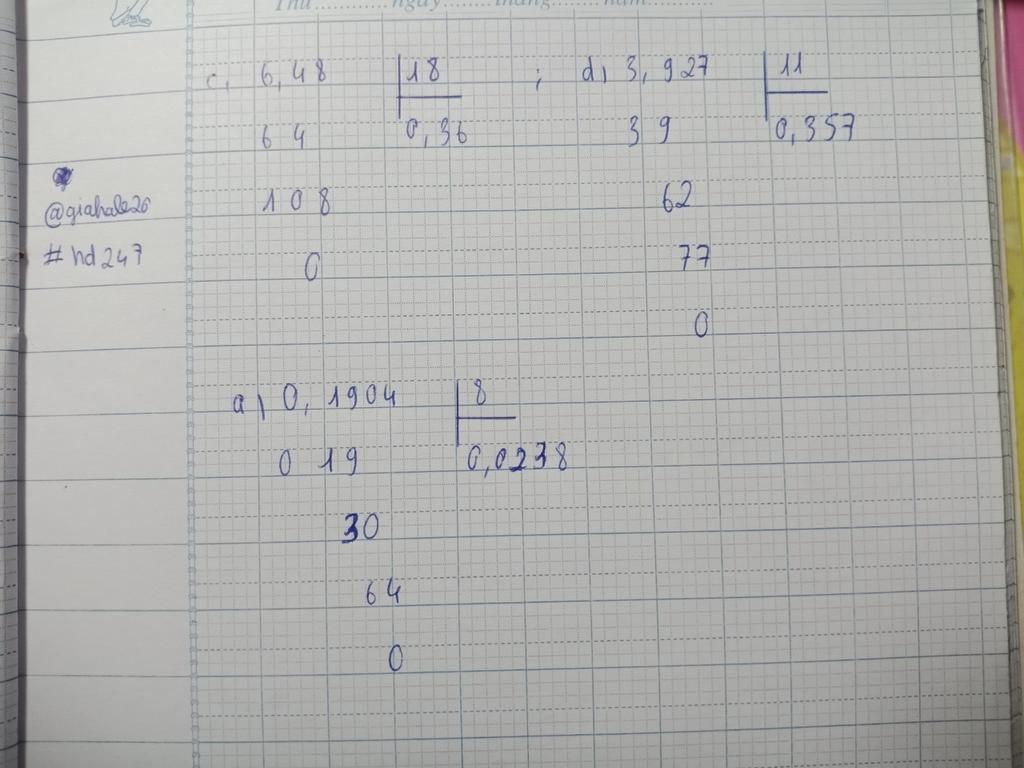 Thứ.............ngày........tháng........năm...........
c, 6,48 18 ; d, 3,927 11
64 0,36 39 0,357
@giahale26
108 62
#hd247
0 77
0
a, 0,1904 8
0 19 0,0238
30
64
0